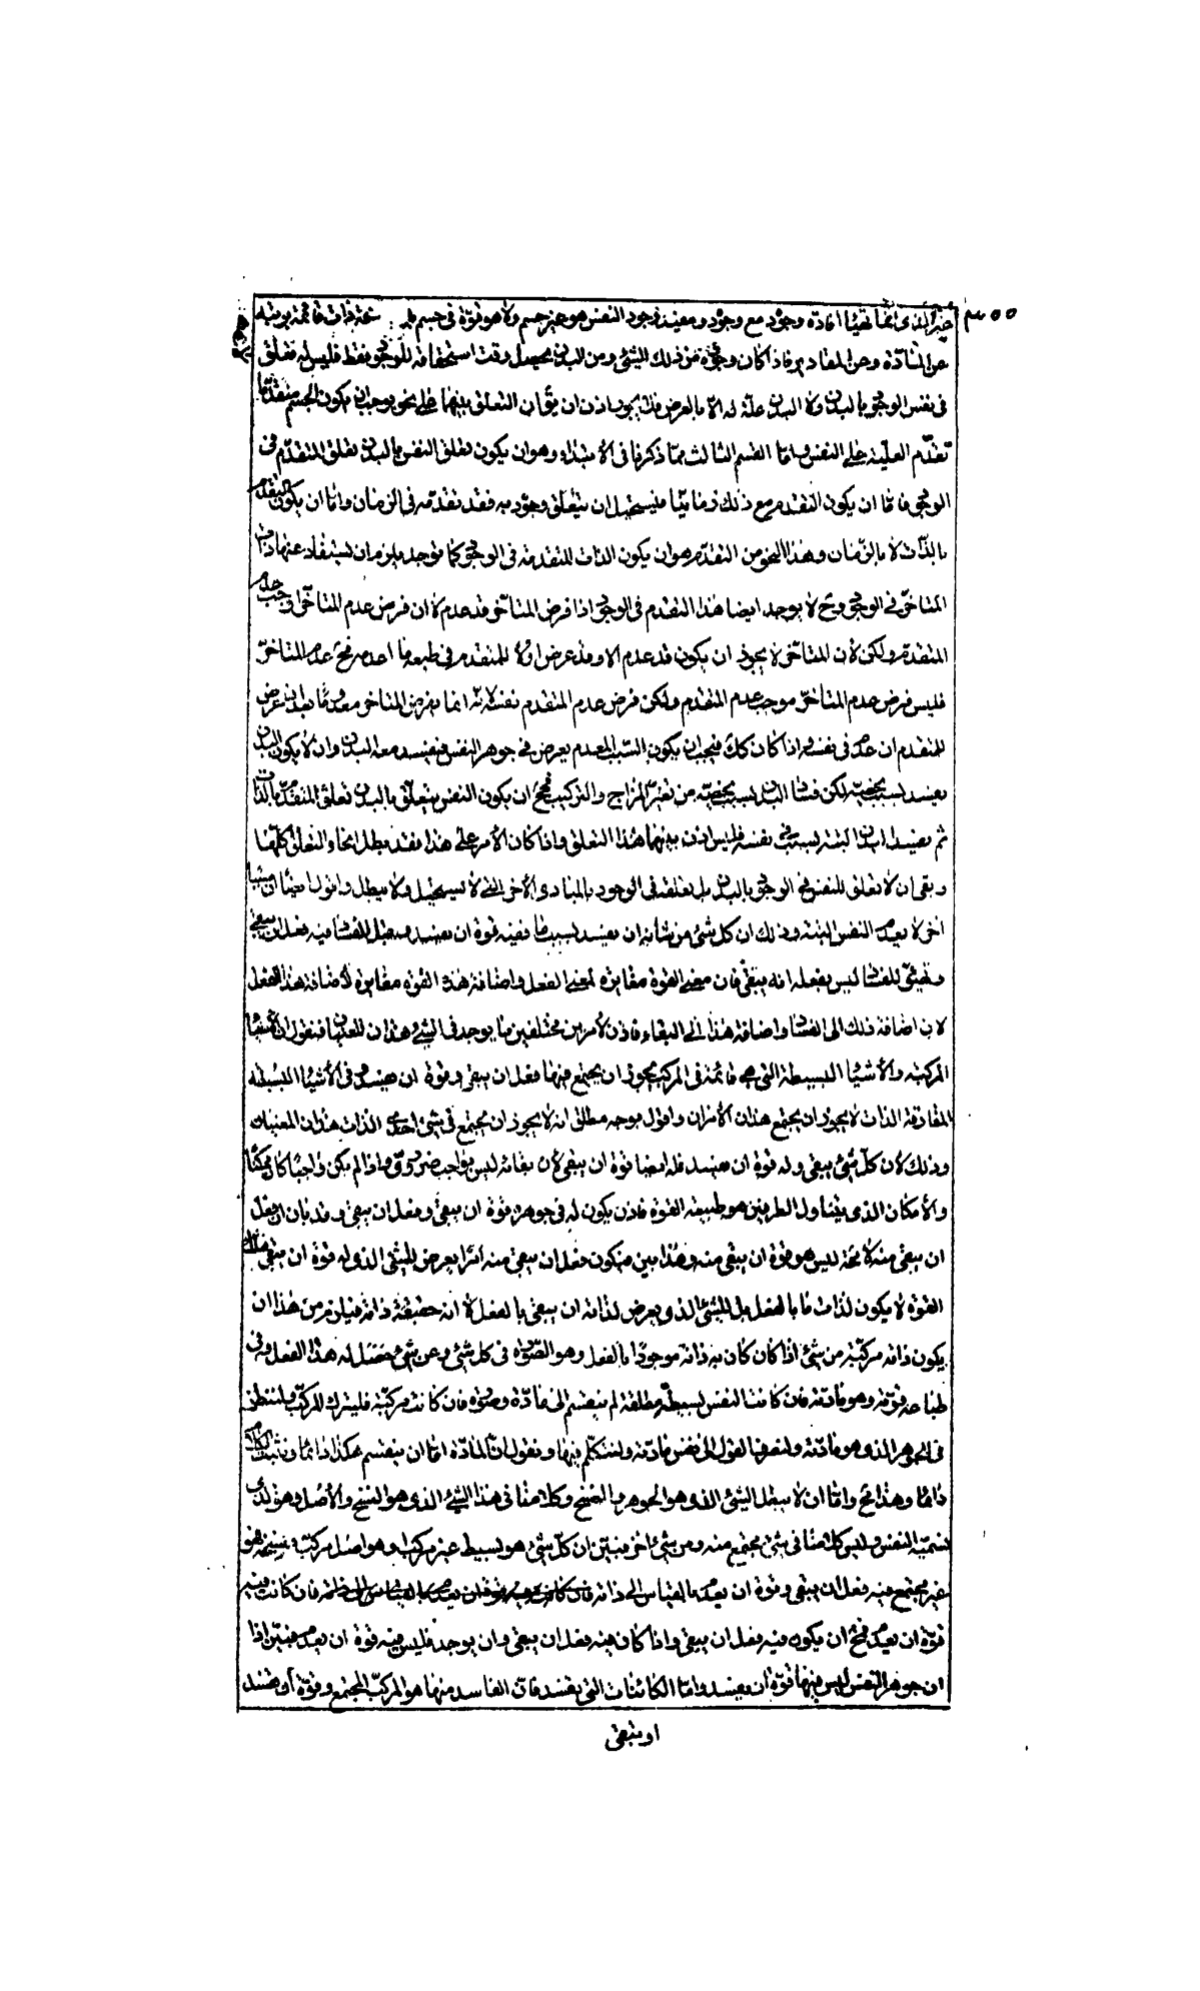 ٣٥٥
غير الذى انما تهيّأ افادة وجوده مع وجوده ومفيد وجود النفس هو غير جسم ولا هو قوة فى جسم بل ذات قائمة بريئة
عن المادّة وعن المقادير فاذا كان وجوده من ذلك الشئ ومن البدن يحصل وقت استحقاقه للوجود فقط فليس له تعلق
فى نفس الوجود بالبدن ولا البدن علة له الا بالعرض فلا يجوز اذن ان يقال ان التعلق بينهما على نحو يوجب ان يكون الجسم متقدما
تقدّم العلية على النفس واما القسم الثالث مما ذكرنا فى الابتداء وهو ان يكون تعلق النفس بالبدن تعلق المتقدّم فى
الوجود فاما ان يكون التقدم مع ذلك زمانيا فيستحيل ان يتعلق وجوده به فقد تقدّمه فى الزمان واما ان يكون التقدم
بالذات لا بالزمان وهذا النحو من التقدّم هو ان يكون الذات المتقدمة فى الوجود كما توجد يلزم ان يستفاد عنها ذات
المتاخر فى الوجود وح لا يوجد ايضا هذا المتقدم فى الوجود اذا فرض المتاخر قد عدم لا ان فرض عدم المتاخر اوجب عدم
المتقدم ولكن لان المتاخر لا يجوز ان يكون قد عدم الا وقد عرض اولا للمتقدم فى طبعه ما اعدمه فح عدم المتاخر
فليس فرض عدم المتاخر موجب عدم المتقدم ولكن فرض عدم المتقدم نفسه لانه انما يفرض المتاخر معدوما بعد ان عرض
للمتقدم ان عدم فى نفسه واذا كان كك فيجب ان يكون السبب المعدم يعرض فى جوهر النفس فيفسد معه البدن وان لا يكون البدن
يفسد بسبب يخصه لكن فساد البدن بسبب يخصه من تغير المزاج والتركيب فمح ان يكون النفس يتعلق بالبدن تعلق المتقدم بالذات
ثم يفسد البدن البتة بسبب فى نفسه فليس اذن بينهما هذا التعلق واذا كان الامر على هذا فقد بطل انحاء التعلق كلها
وبقى ان لا تعلق للنفس فى الوجود بالبدن بل تعلقه فى الوجود بالمبادى الاخر التى لا تستحيل ولا تبطل واقول ايضا ان سببا
اخر لا يعدم النفس البتة وذلك ان كل شئ من شانه ان يفسد بسبب ما ففيه قوة ان يفسد وقبل الفساد فيه فعل ان يبقى
وتهيؤ للفساد ليس بفعله انه يبقى فان معنى القوة مغايرة لمعنى الفعل واضافة هذه القوة مغايرة لاضافة هذا الفعل
لان اضافة ذلك الى الفساد واضافة هذا الى البقاء فاذن لامرين مختلفين ما يوجد فى الشئ هذان المعنيان فنقول ان الاشياء
المركبة والاشياء البسيطة التى هى قائمة فى المركب يجوز ان يجتمع فيها فعل ان يبقى وقوة ان يفسد وفى الاشياء البسيطة
المفارقة الذات لا يجوز ان يجتمع هذان الامران واقول بوجه مطلق انه لا يجوز ان يجتمع فى شئ احدى الذات هذان المعنيان
وذلك لان كل شئ يبقى وله قوة ان يفسد فله ايضا قوة ان يبقى لان بقائه ليس بواجب ضرورى واذا لم يكن واجبا كان ممكنا
والامكان الذى يتناول الطرفين هو طبيعة القوة فاذن يكون له فى جوهره قوة ان يبقى وفعل ان يبقى وقد بان ان فعل
ان يبقى منه لا محة ليس هو قوة ان يبقى منه وهذا بين فيكون فعل ان يبقى منه امرا يعرض للشئ الذى له قوة ان يبقى فتلك
القوة لا يكون لذات ما بالفعل بل للشئ الذى يعرض لذاته ان يبقى بالفعل لا انه حقيقة ذاته فيلزم من هذا ان
يكون ذاته مركبة من شئ اذا كان كان به ذاته موجودا بالفعل وهو الصورة فى كل شئ وعن شئ حصل له هذا الفعل وفى
طباعه قوته وهو مادته فان كانت النفس بسيطة مطلقة لم ينقسم الى مادة وصورة فان كانت مركبة فليترك المركب ولننظر
فى الجوهر الذى هو مادته ولنصرف القول الى نفس مادته ولنتكلم فيها ونقول ان المادة اما ان ينقسم هكذا دائما ونثبت الكلام
دائما وهذا مح واما ان لا يبطل الشئ الذى هو الجوهر والسنخ وكلامنا فى هذا الشئ الذى هو السنخ والاصل وهو الذى
نسميه النفس وليس كلامنا فى شئ مجتمع منه ومن شئ اخر فبين ان كل شئ هو بسيط غير مركب او هو اصل مركب وسنخه فهو
غير مجتمع فيه فعل ان يبقى وقوة ان يعدم بالقياس الى ذاته فان كانت فيه
قوة ان يعدم فمح ان يكون فيه فعل ان يبقى واذا كان فيه فعل ان يبقى وان يوجد فليس فيه قوة ان يعدم فبين اذا
ان جوهر النفس ليس فيها قوة ان يفسد واما الكائنات التى يفسد فان الفاسد منها هو المركب المجتمع وقوة ان يفسد
او يبقى